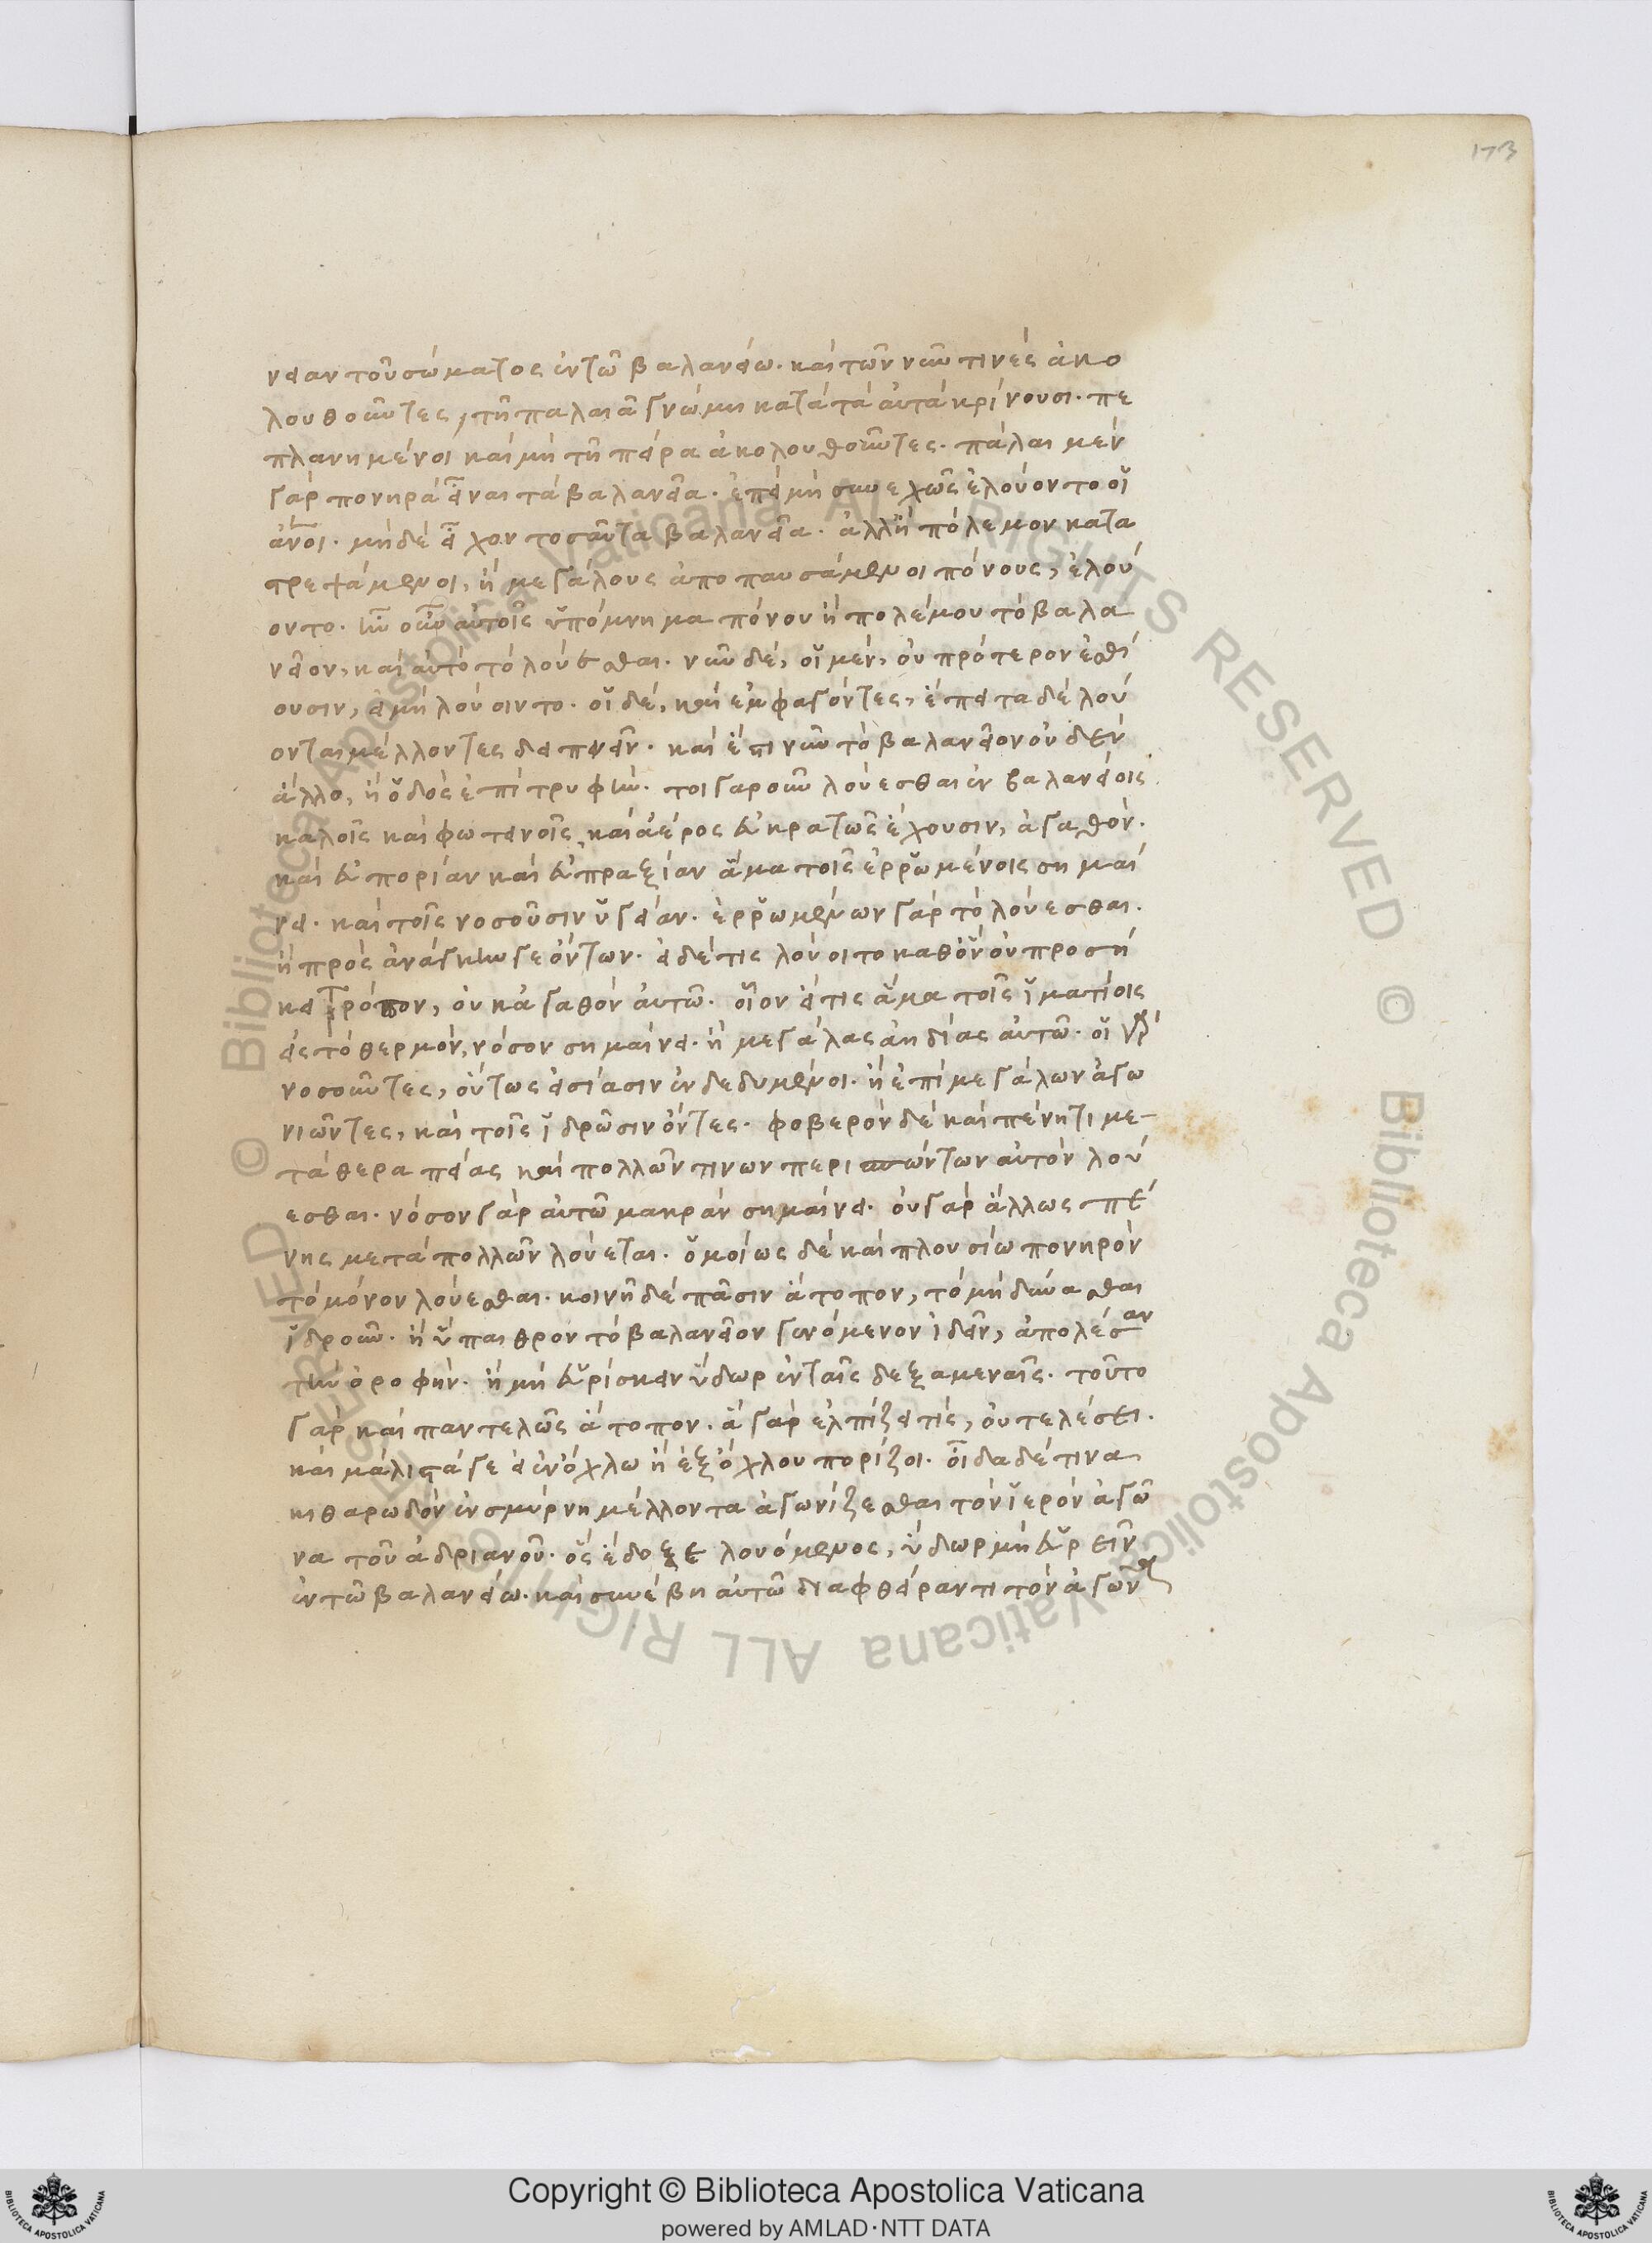 173
νειαν τοῦ σώματος ἐν τῶ βαλανείω. καὶ τῶν νῦν τινὲς ἀκο
λουθοῦντες, τῆ παλαιᾶ γνώμη κατὰ τὰ αὐτὰ κρίνουσι. πε
πλανημένοι καὶ μὴ τῆ πείρα ἀκολουθοῦντες. πάλαι μὲν
γὰρ πονηρὰ εἶναι τὰ βαλανεῖα. ἐπεὶ μὴ συνεχῶς ἐλούοντο οἱ
ἄνοι. μὴ δὲ εἶχον τοσαῦτα βαλανεῖα. ἀλλ' ἢ πόλεμον κατα
στρεψάμενοι, ἢ μεγάλους ἀποπαυσάμενοι πόνους, ἐλού
οντο. ἦν οὖν αὐτοῖς ὑπόμνημα πόνου ἢ πολέμου τὸ βαλα
νεῖον, καὶ αὐτὸ τὸ λούεσθαι. νῦν δὲ, οἱ μὲν, οὐ πρότερον ἐσθί
ουσιν, εἰ μὴ λούσιντο. οἱ δὲ, καὶ ἐμφαγόντες, ἔπειτα δὲ λού
ονται μέλλοντες δειπνεῖν. καὶ ἔστι νῦν τὸ βαλανεῖον οὐδὲν
ἄλλο, ἢ ὁδὸς ἐπὶ τρυφήν. τοιγαροῦν λούεσθαι ἐν βαλανείοις
καλοῖς καὶ φωτεινοῖς, καὶ ἀέρος εὐκρατῶς ἔχουσιν, ἀγαθόν.
καὶ εὐπορίαν καὶ εὐπραξίαν ἅμα τοῖς ἐρρωμένοις σημαί
νει. καὶ τοῖς νοσοῦσιν ὑγείαν. ἐρρωμένων γὰρ τὸ λούεσθαι.
ἢ πρὸς ἀνάγκην γε ὄντων. εἰ δέ τις λούοιτο καθ' ὃν οὐ προσή
κει τρόπον, οὐκ ἀγαθὸν αὐτῶ. οἷον εἴ τις ἅμα τοῖς ἱματίοις
εἰς τὸ θερμὸν, νόσον σημαίνει. ἢ μεγάλας ἀηδίας αὐτῶ. οἱ γὰρ
νοσοῦντες, οὕτως εἰσίασιν ἐνδεδυμένοι. ἢ ἐπὶ μεγάλων ἀγω
νιῶντες, καὶ τοῖς ἱδρῶσιν ὄντες. φοβερὸν δὲ καὶ πένητι με-
τὰ θεραπείας καὶ πολλῶν τινων περι όντων αὐτὸν λού
εσθαι. νόσον γὰρ αὐτῶ μακρὰν σημαίνει. οὐ γὰρ ἄλλως πέ
νης μετὰ πολλῶν λούεται. ὁμοίως δὲ καὶ πλουσίω πονηρὸν
τὸ μόνον λούεσθαι. κοινῆ δὲ πᾶσιν ἄτοπον, τὸ μὴ δύνασθαι
ἱδροῦν. ἢ ὕπαιθρον τὸ βαλανεῖον γενόμενον ἰδεῖν, ἀπολέσαν
τὴν ὀροφήν. ἢ μὴ εὑρίσκειν ὕδωρ ἐν ταῖς δεξαμεναῖς. τοῦτο
γὰρ καὶ παντελῶς ἄτοπον. ἃ γὰρ ἐλπίζει τίς, οὐ τελέσει.
καὶ μάλιστά γε εἰ ἐν ὄχλω ἢ ἐξ ὄχλου πορίζοι. οἶδα δέ τινα
κιθαρωδὸν ἐν σμύρνη μέλλοντα ἀγωνίζεσθαι τὸν ἱερὸν ἀγῶ
να τοῦ ἀδριανοῦ. ὃς ἔδοξε λουόμενος, ὕδωρ μὴ εὑρεῖν
ἐν τῶ βαλανείω. καὶ συνέβη αὐτῶ διαφθείραντι τὸν ἀγῶνα
Copyright © Biblioteca Apostolica Vaticana
powered by AMLAD·NTT DATA